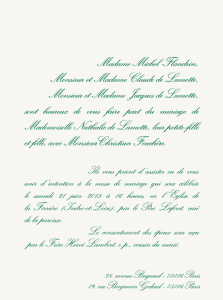 Madame Michel Flandrin,
Monsieur et Madame Claude de Lamotte,
Monsieur et Madame Jacques de Lamotte,
sont heureux de vous faire part du mariage de
Mademoiselle Nathalie de Lamotte, leur petite-fille
et fille, avec Monsieur Christian Fouchère.
Ils vous prient d'assister ou de vous
unir d'intention à la messe de mariage qui sera célébrée
le samedi 21 juin 2015 à 16 heures, en l'Église de
La Ferrière (Indre-et-Loire), par le Père Lefort, curé
de la paroisse.
Le consentement des époux sera reçu
par le Frère Hervé Lambert, o.p., cousin du marié.
28, avenue Bugeaud - 75116 Paris
19, rue Benjamin Godard - 75116 Paris